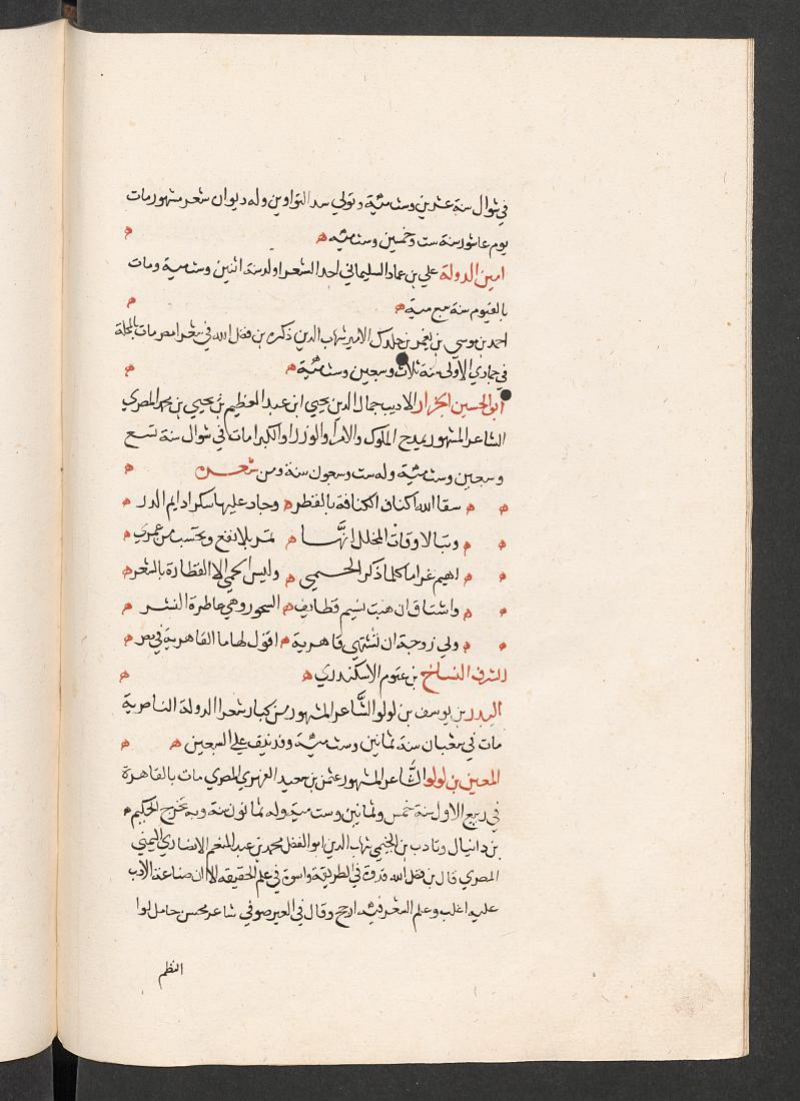 في شوال سنة عشرين وستمئية وتولي سد التواوين وله ديوان شعر مشهور مات
يوم عاشور سنة ست وخمسين وستمئيه
امين الدولة علي بن عماد السليماني احد الشعرا ولد سنة اثنين وستمية ومات
بالفيوم سنة سبع مية
احمد بن موسي بن يغمر بن جلدك الامير شهاب الدين ذكره بن فضل الله في شعرا مصر مات بالمحلة
في جمادي الاولي سنة ثلاث وسبعين وستمئية
ابو الحسين الجزار الاديب جمال الدين يحيي ابن عبد العظيم بن يحيي بن محمد المصري
الشاعر المشهور يمدح الملوك والامرا والوزرا والكبرا مات في شوال سنة تسع
وسبعين وستمئية وله ست وسبعون سنة ومن شعره
سقا الله اكناف الكنافة بالقطر وجاد عليها سكرا دايم الدر
وتبا لاوقات المخلل انها تمر بلا نفع وتحسب من عمري
اهيم غراما كلما ذكر الحمي وليس الحمي الا القطارة بالشعر
واشتاق ان هبت نسيم قطايف السحور وهي عاطرة النشر
ولي زوجة ان تشتهي قاهرية اقول لها ما القاهرية في مصر
الشرف الناسخ بن عتوم الاسكندري
البدر بن يوسف بن لولو الشاعر المشهور من كبار شعرا الدولة الناصرية
مات في شعبان سنة ثمانين وستمئية وقد نيف علي السبعين
المعين بن لولو الشاعر المشهور عثمن بن سعيد الفهري المصري مات بالقاهرة
في ربيع الاول سنة خمس وثمانين وستمية وله ثمانون سنة وبه تخرج الحكيم
بن دانيال وتادب بن الخيمي شهاب الدين ابو الفضل محمد بن عبد المنعم الانصاري اليمني
المصري قال بن فضل الله قدوة في الطريقة واسوة في علم الحقيقه الا ان صناعة الادب
عليه اغلب وعلم الشعر فيه ارجح وقال في العبر صوفي شاعر محسن حامل لوا
النظم